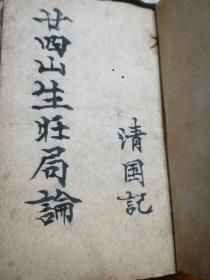 廿四山生旺局論
清国記